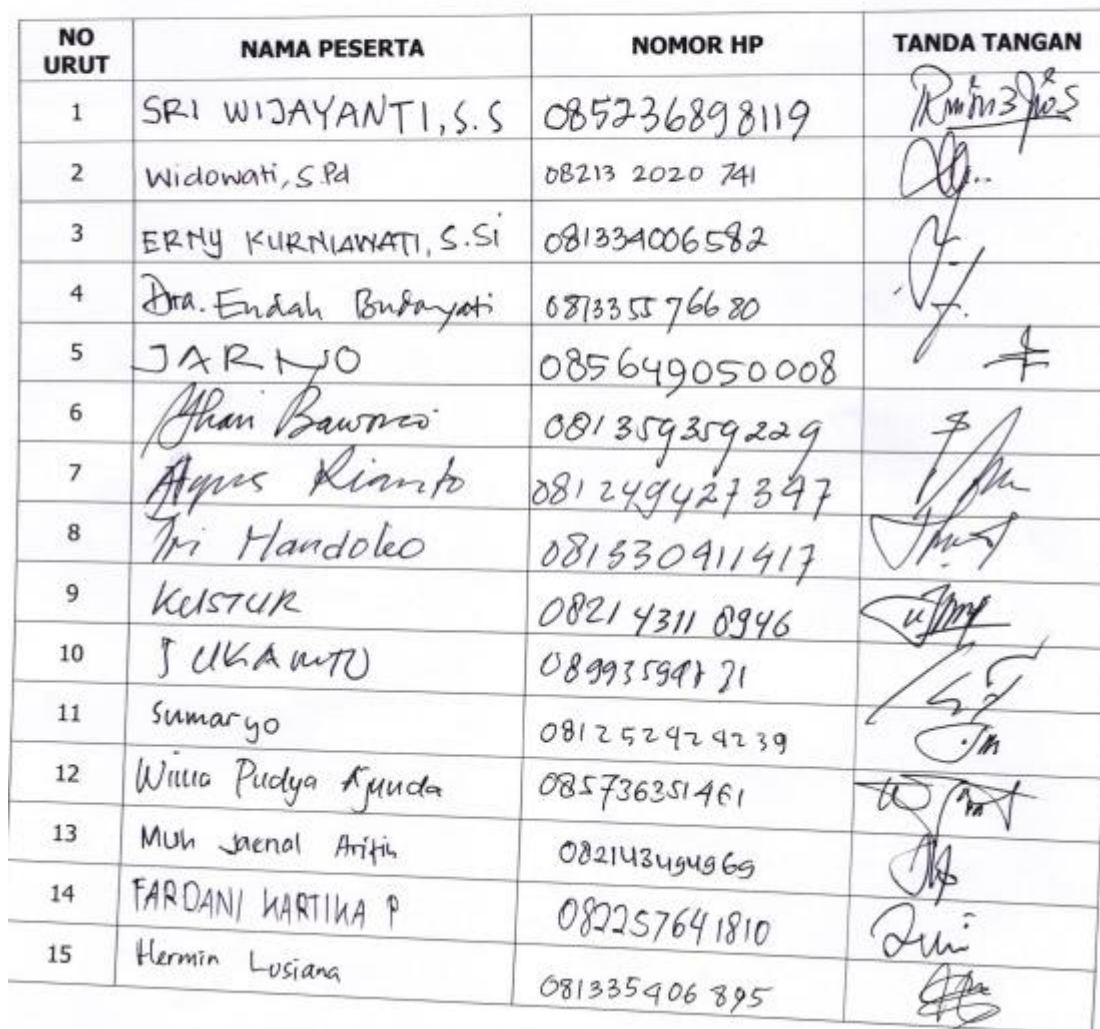 NO URUT NAMA PESERTA NOMOR HP TANDA TANGAN
1 SRI WIJAYANTI, S.S 085236898119
2 Widowati, S.Pd 08213 2020 741
3 ERNY KURNIAWATI, S.Si 081334006582
4 Dra. Endah 081335576680
5 JARNO 085649050008
6 081359359229
7 Agus Rianto 081249427347
8 Tri Handoko 081330411417
9 KUSTUR 0821 4311 8946
10 SUKAMTO
11 Sumaryo 081252424239
12 Pudya 085736351461
13 Muh Jaenal Arifin 082143494969
14 FARDANI KARTIKA P 082257641810
15 Hermin Lusiana 081335406 895